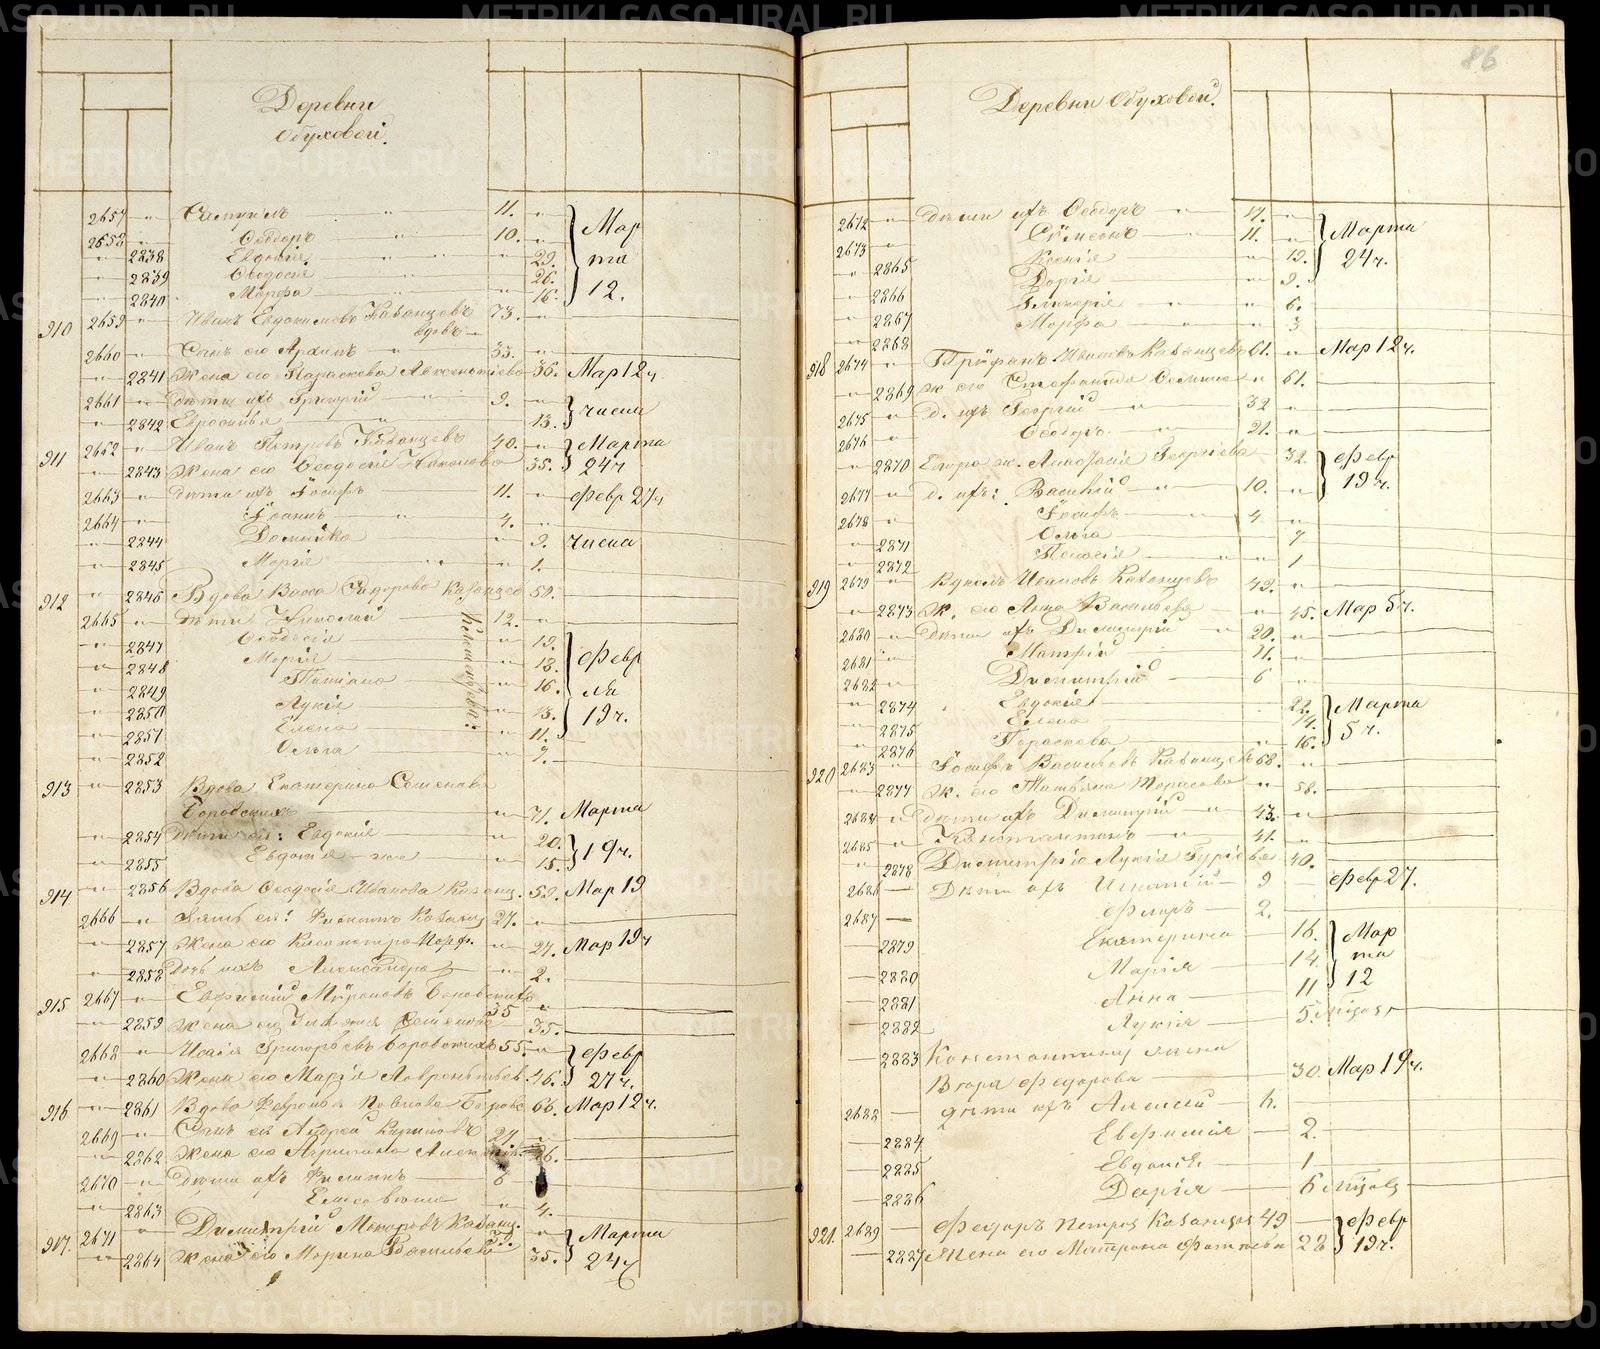 Деревни
Обуховой.
2657 " Самуилъ " 11. "
2658 " Ѳеодоръ " 10. " Мар
" 2838 Евдокія " 29.
" 2839 Ѳеодосія " 26. та
" 2840 Марѳа 16. 12.
910 2659 " Иванъ Евдокимовъ Казанцевъ 73. "
вдовъ
2660 " Сынъ его Архипъ " 33. "
" 2841 Жена его Параскева Авксентіева 36. Мар 12 ч
2661 " Дѣти ихъ Григорій 9. "
" 2842 Евросинья 13. числа
911 2662 " Иванъ Петровъ Казанцевъ 40. " Марта
" 2843 Жена его Ѳеодосія 35. 24 ч
2663 " Дѣти ихъ Іосифъ 11. " Февр 27 ч
2664 " Іоаннъ " 4. "
" 2844 Домника " 9. числа
" 2845 Марія " 1.
912 " 2846 Вдова Васса Сидорова Казанцев 52.
2665 " Дѣти Николай 12. "
" 2847 Ѳеодосія " 19.
" 2848 Марія " 18. Февр
" 2849 Татіана " 16. ля
" 2850 Лукія " 13. 19 ч.
" 2851 Елена " 11.
" 2852 Ольга 7.
913 " 2853 Вдова Екатерина Семенова
Боровскихъ " 71. Марта
" 2854 Дѣти ея: Евдокія 20.
" 2855 Евдокія-же 15. 19 ч.
914 " 2856 Вдова Ѳеодосія Иванова Казанц. 52. Мар 19
2666 " Зять ея: Филиппъ Казанц 27. "
" 2857 Жена его Клеопатра Перф. " 27. Мар 19 ч
" 2858 Дочь ихъ Александра " 2.
915 2667 " Евфимій Мѵроновъ Боровскихъ 35 "
" 2859 Жена его Семенова 35.
2668 " Исаія Григорьевъ Боровскихъ 55. " Февр
" 2860 Жена его Марѳа Лаврентьева 46. 27 ч.
916 " 2861 Вдова Февронья Павлова Боровс 66. Мар 12 ч.
2669 " Сынъ ея Андрей Кириловъ 27. "
" 2862 Жена его Агрипина 26.
2670 " Дѣти ихъ Филиппъ 6
" 2863 Елисавета " 4.
917. 2671 " Димитрій Макаровъ Казанц. 39. " Марта
" 2864 Жена его Марина Васильева 35. 24 ч
86
Деревни Обуховой.
2672 " Дѣти ихъ Ѳеодоръ " 17. "
2673 " Сѵмеонъ " 11. " Марта
" 2865 Ксенія " 19. 24 ч.
" 2866 Дарія " 9.
" 2867 Гликерія " 6.
" 2868 Марѳа " 3
918 2674 " Трѵфонъ Ивановъ Казанцевъ 61. " Мар 12 ч.
" 2869 ж. его Стефанида " 61.
2675 " д. ихъ Георгій " 32 "
2676 " Ѳеодоръ " 21. "
" 2870 Егора ж. Анастасія Георгіева 32. Февр
2677 " д. ихъ: Василій " 10. " 19 ч.
2678 " Іосифъ " 4. "
" 2871 Ольга " 7
" 2872 Пелагія " 1
919 2679 " Вуколъ Ивановъ Казанцевъ 42. "
" 2873 Ж. его Анна Васильева " 45. Мар 5 ч.
2680 " Дѣти ихъ Димитрій " 20. "
2681 " Матѳій " 11. "
2682 " Димитрій " 6 "
" 2874 Евдокія 22. Марта
" 2875 Елена 14. 5 ч.
" 2876 Параскева " 16.
920 2683 " Іосифъ Васильевъ Казанцевъ 68. "
" 2877 Ж. его Татьяна Тарасова " 58.
2684 " дѣти ихъ Димитрій " 43. "
2685 " Константинъ " 41. "
" 2878 Димитрія Лукія Гурьева 40.
2686 — Дѣти ихъ Игнатій 9 Февр 27.
2687 — Флоръ 2.
2879 Екатерина 16. Мар
2880 Марія 14. та
2881 Анна 11 12
2882 Лукія 5. мѣсяц
2883 Константина жена
Вѣра Федорова 30. Мар 19 ч.
2688 — дѣти ихъ Алексій 4.
2884 Евфимія 2.
2885 Евдокія 1
2886 Дарія 6 мѣсяц
921. 2689 Федоръ Петров Казанцов 49 Февр
2887 Жена его Матрона 28 19 ч.